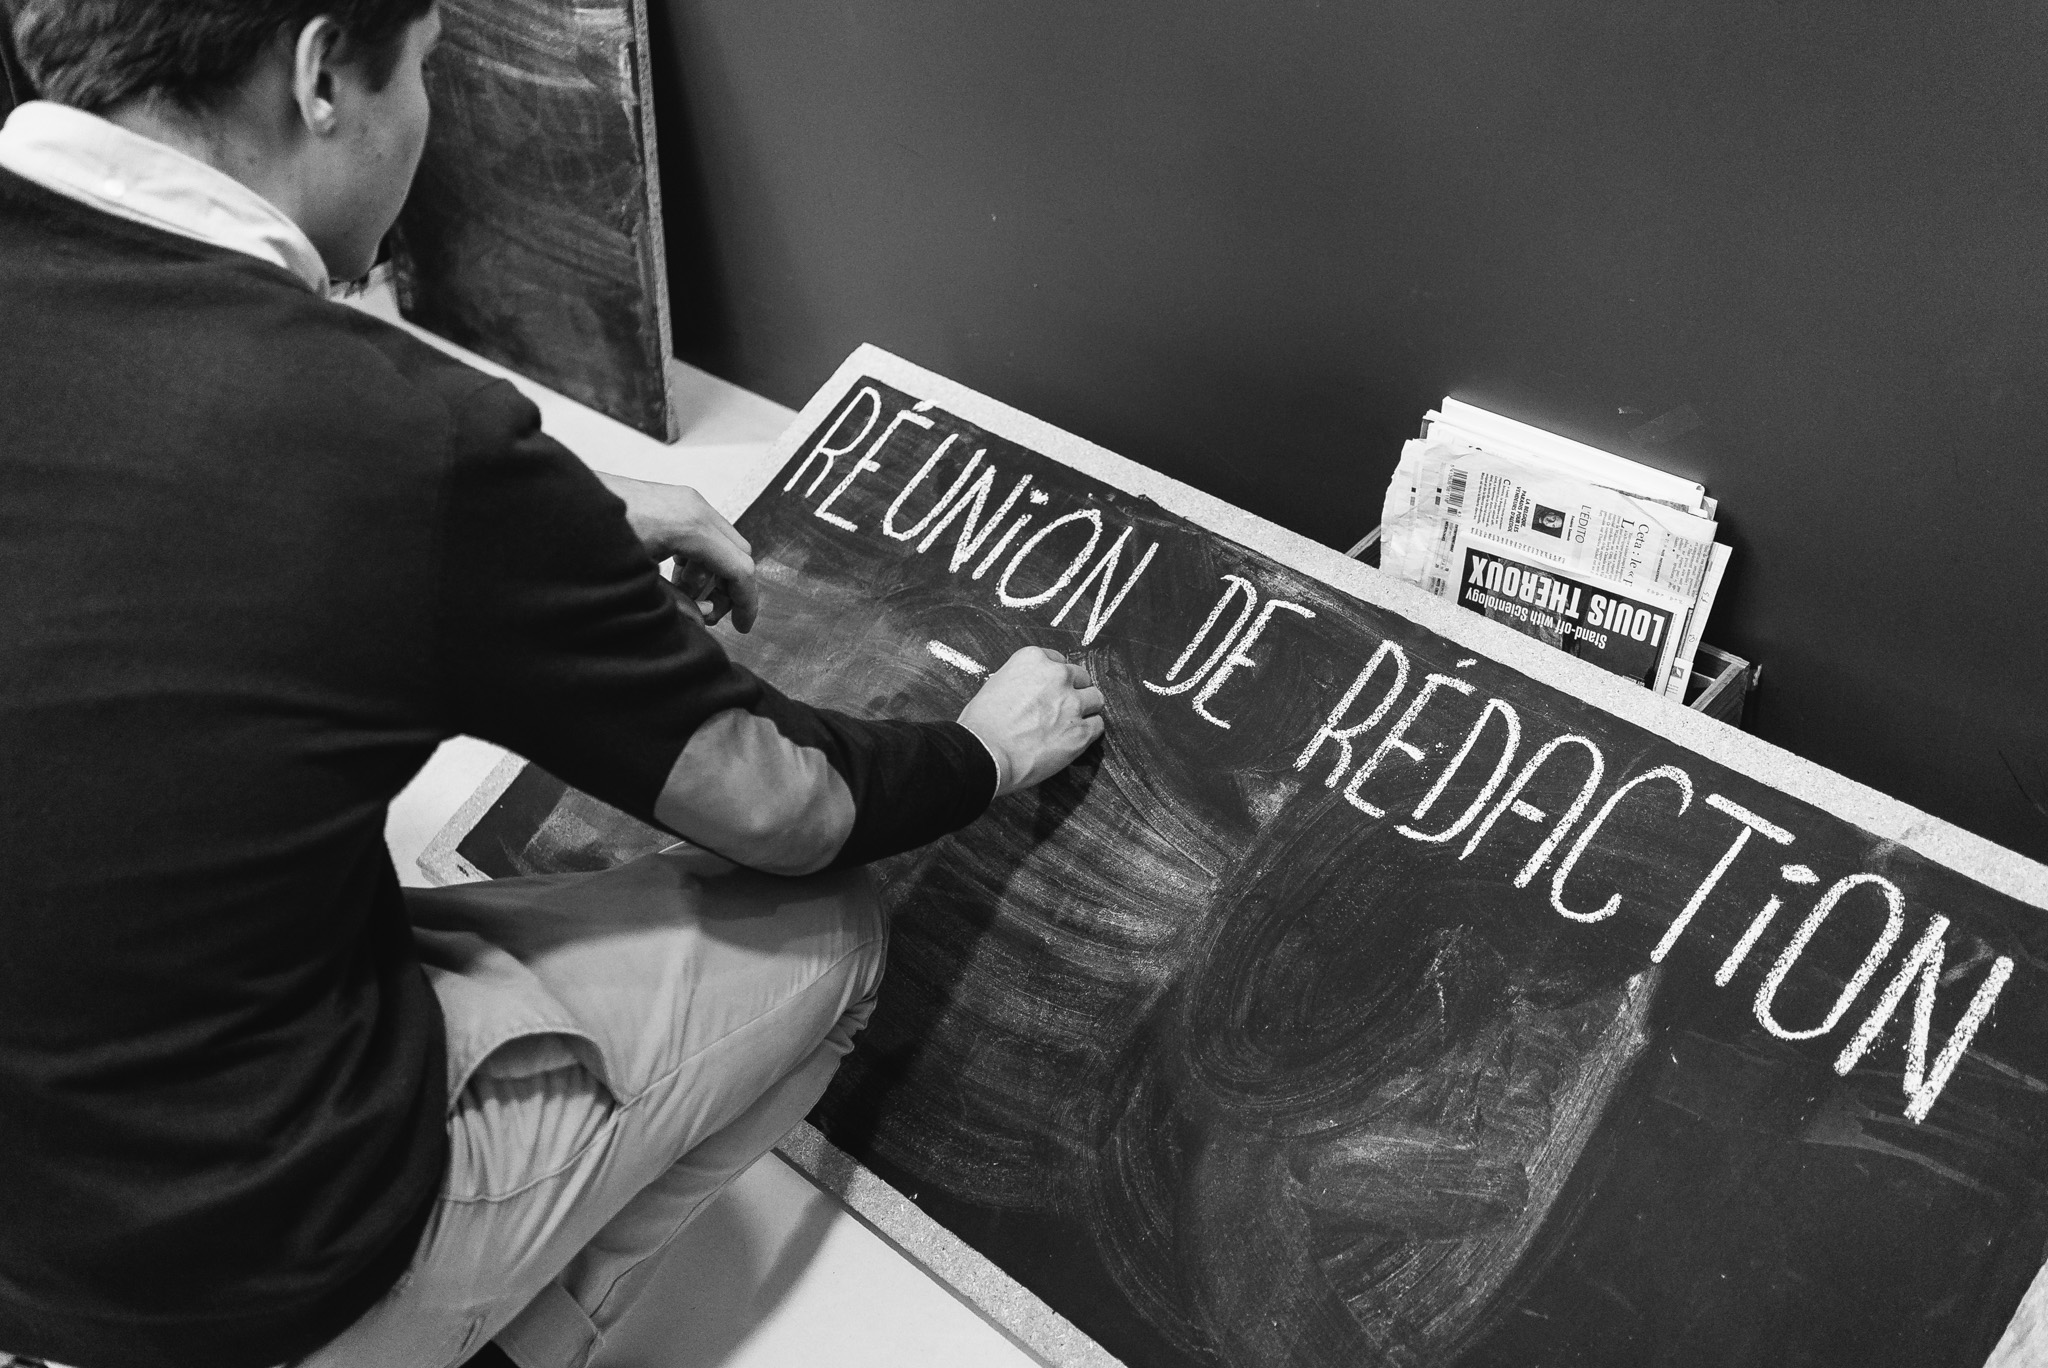 RÉUNiON DE RÉDACTiON
-
L'ÉDITO
Ceta : le
LOUIS THEROUX
Stand-off with Scientology